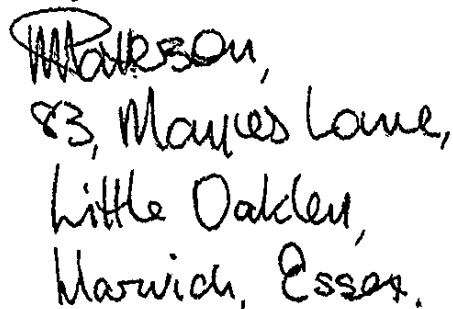 M Patterson,
83, Mayes Lane,
Little Oakley,
Harwich, Essex.